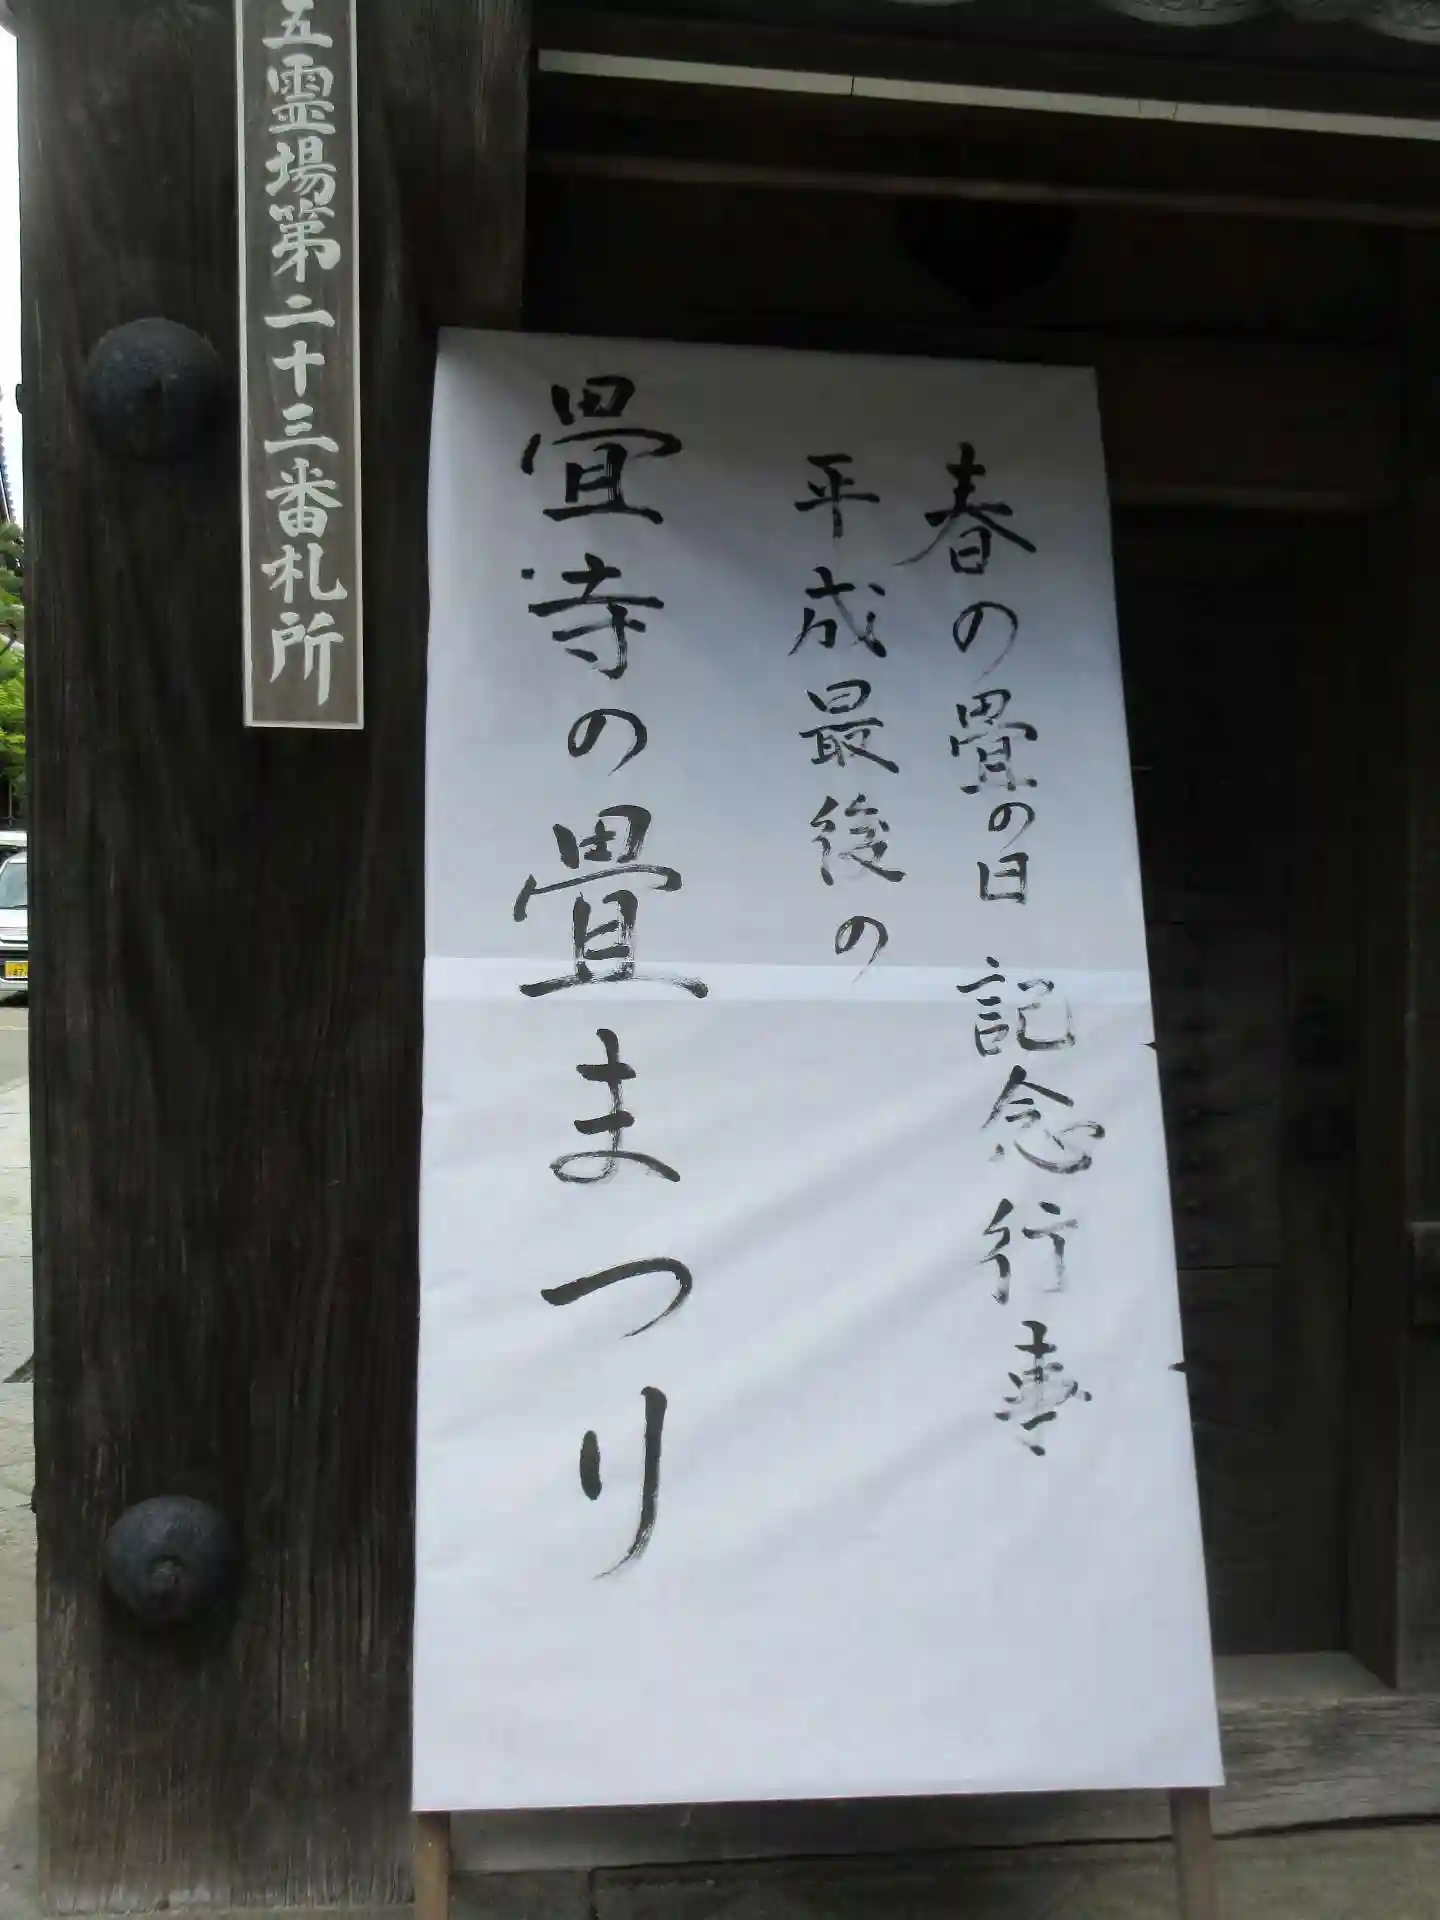 春の畳の日 記念行事
平成最後の
畳寺の畳まつり
五霊場第二十三番札所